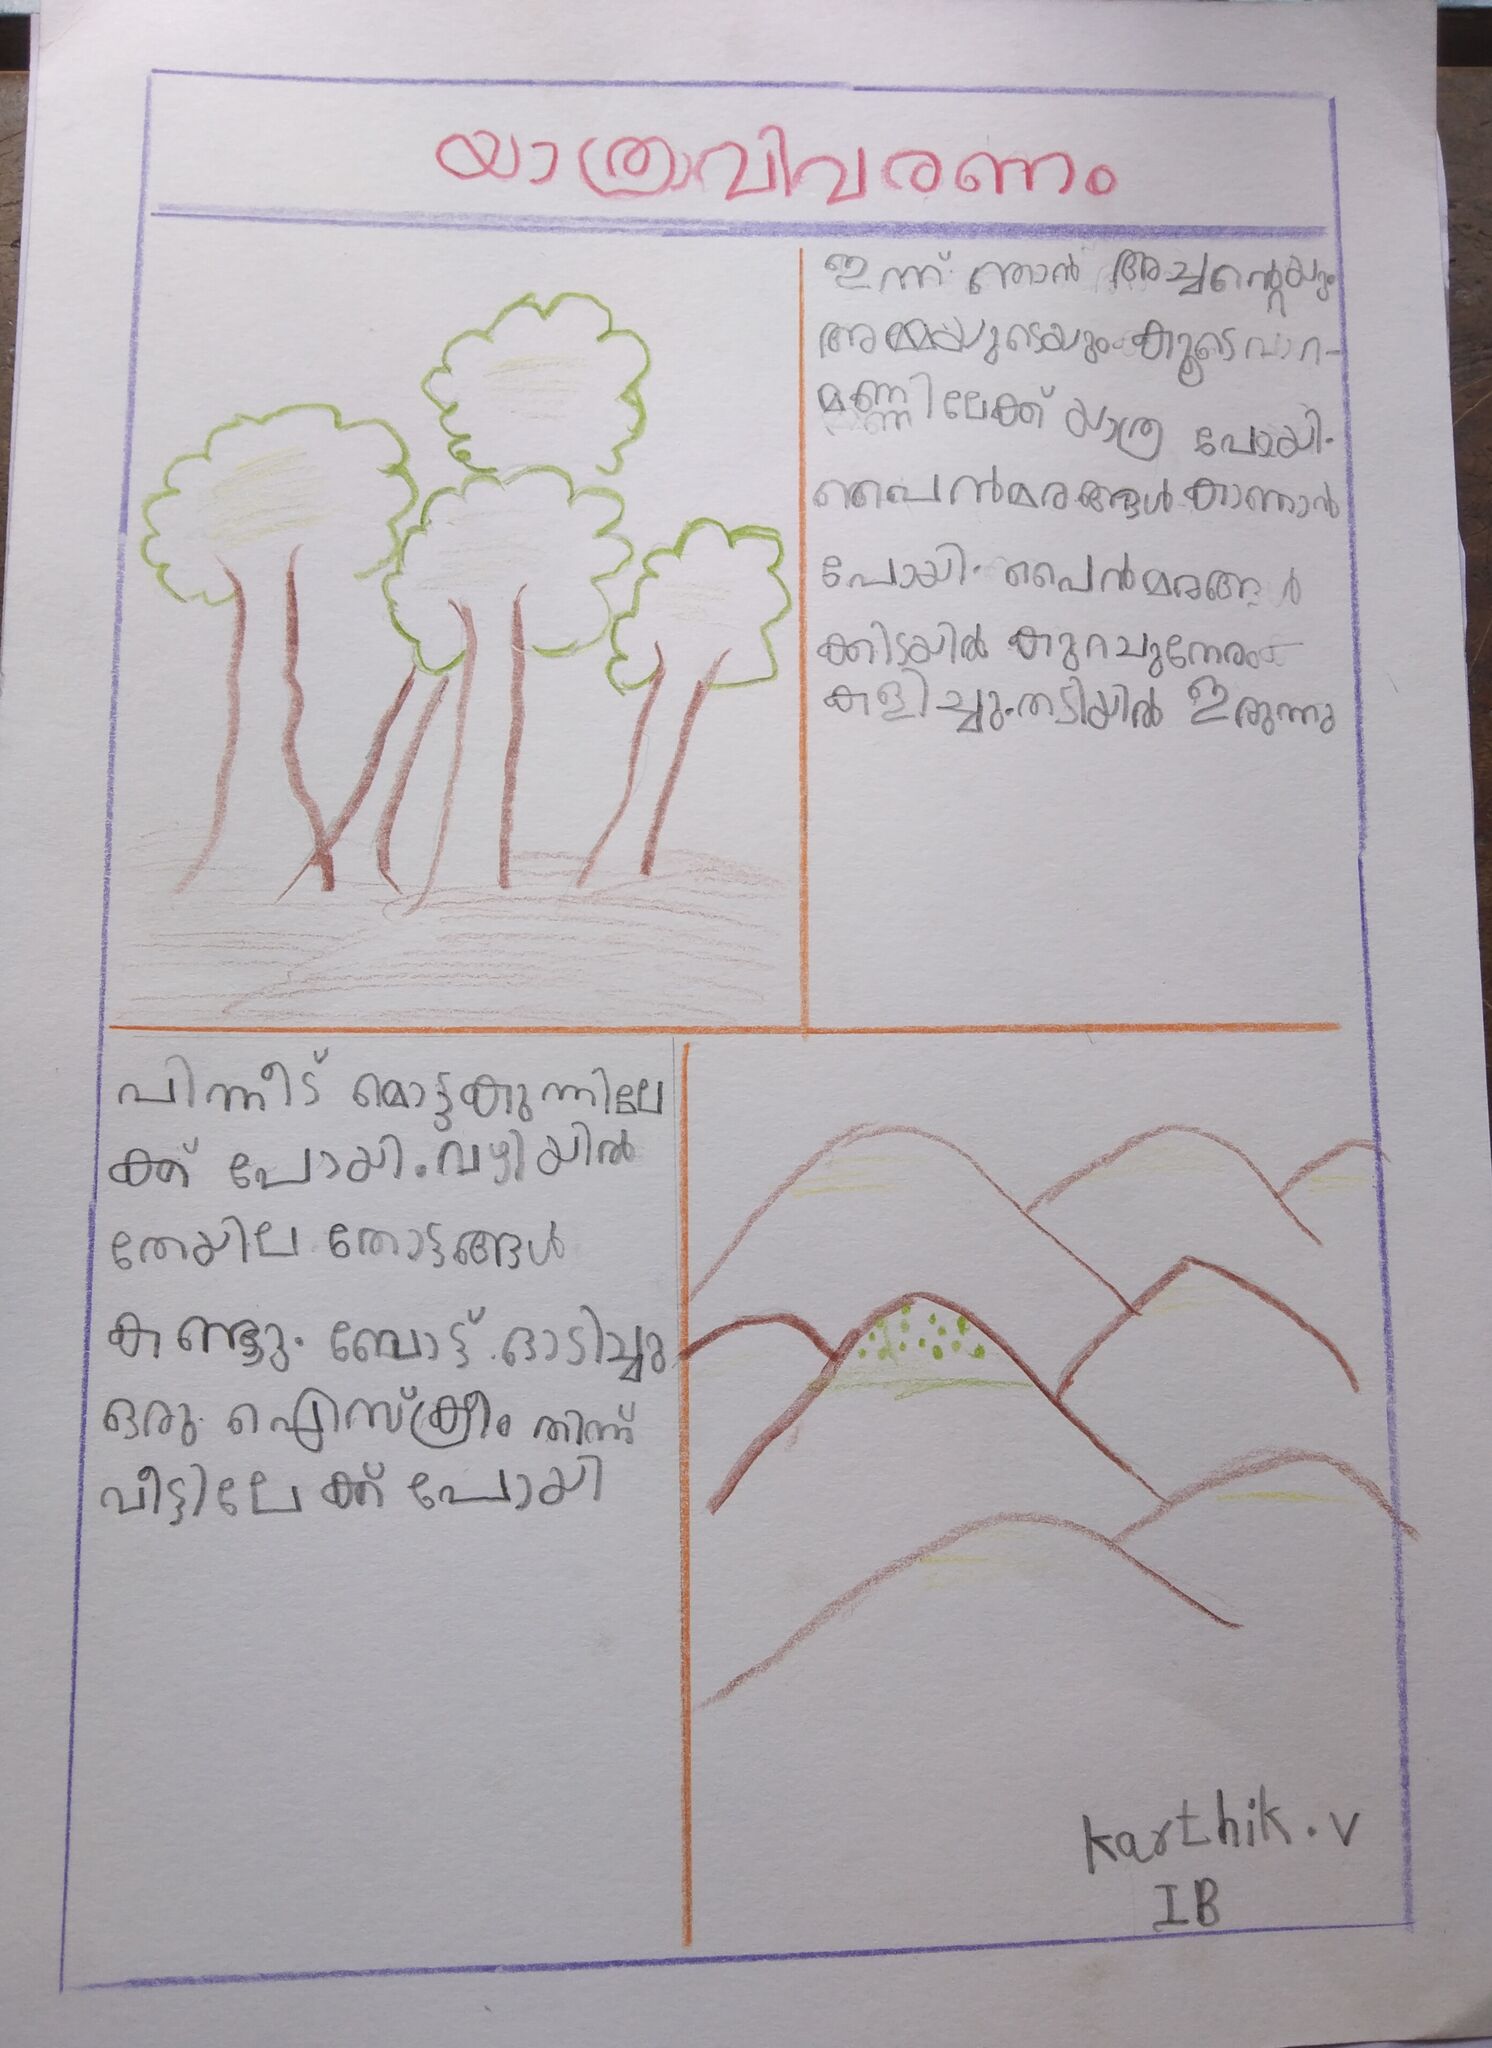 യാത്രാവിവരണം
ഇന്ന് ഞാൻ അച്ഛന്റെയും
അമ്മയുടെയും കൂടെ വാഗ-
മണ്ണിലേക്ക് യാത്ര പോയി.
പൈൻമരങ്ങൾ കാണാൻ
പോയി. പൈൻമരങ്ങൾ
ക്കിടയിൽ കുറച്ചുനേരം
കളിച്ചു. തടിയിൽ ഇരുന്നു
പിന്നീട് മൊട്ടകുന്നിലേ
ക്ക് പോയി. വഴിയിൽ
തേയില തോട്ടങ്ങൾ
കണ്ടു. ബോട്ട് ഓടിച്ചു
ഒരു ഐസ്ക്രീം തിന്ന്
വീട്ടിലേക്ക് പോയി
Karthik. V
I B